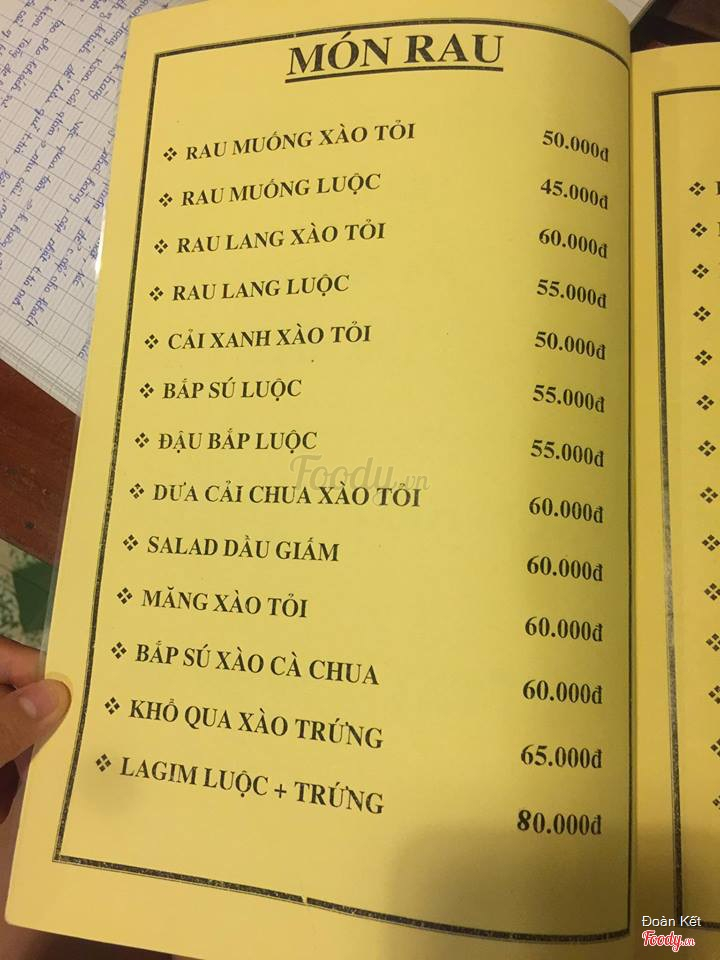 MÓN RAU
❖ RAU MUỐNG XÀO TỎI 50.000đ
❖ RAU MUỐNG LUỘC 45.000đ
❖ RAU LANG XÀO TỎI 60.000đ
❖ RAU LANG LUỘC 55.000đ
❖ CẢI XANH XÀO TỎI 50.000đ
❖ BẮP SÚ LUỘC 55.000đ
❖ ĐẬU BẮP LUỘC 55.000đ
❖ DƯA CẢI CHUA XÀO TỎI 60.000đ
❖ SALAD DẦU GIẤM 60.000đ
❖ MĂNG XÀO TỎI 60.000đ
❖ BẮP SÚ XÀO CÀ CHUA 60.000đ
❖ KHỔ QUA XÀO TRỨNG 65.000đ
❖ LAGIM LUỘC + TRỨNG 80.000đ
Foody.vn
Đoàn Kết
Foody.vn